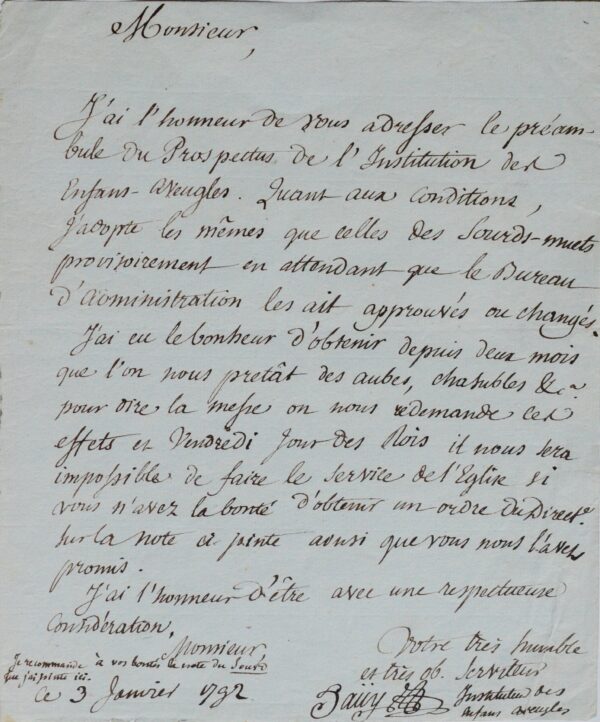 Monsieur,
J'ai l'honneur de vous adresser le préam-
bule du Prospectus de l'Institution des
Enfans-aveugles. Quant aux conditions,
j'adopte les mêmes que celles des Sourds-muets
provisoirement en attendant que le Bureau
d'administration les ait approuvés ou changés.
J'ai eu le bonheur d'obtenir depuis deux mois
que l'on nous pretât des aubes, chasubles &c.a
pour dire la messe on nous redemande ces
effets et Vendredi Jour des Rois il nous sera
impossible de faire le service de l'Eglise si
vous n'avez la bonté d'obtenir un ordre du Direct.e
sur la note ci jointe ainsi que vous nous l'avez
promis.
J'ai l'honneur d'être avec une respectueuse
Considération,
Monsieur,
Votre très humble
et très ob. Serviteur
Haüy
Instituteur des
enfans aveugles
Je recommande à vos bontés la note du Sourd
que j'ai jointe ici.
Ce 3 Janvier 1792